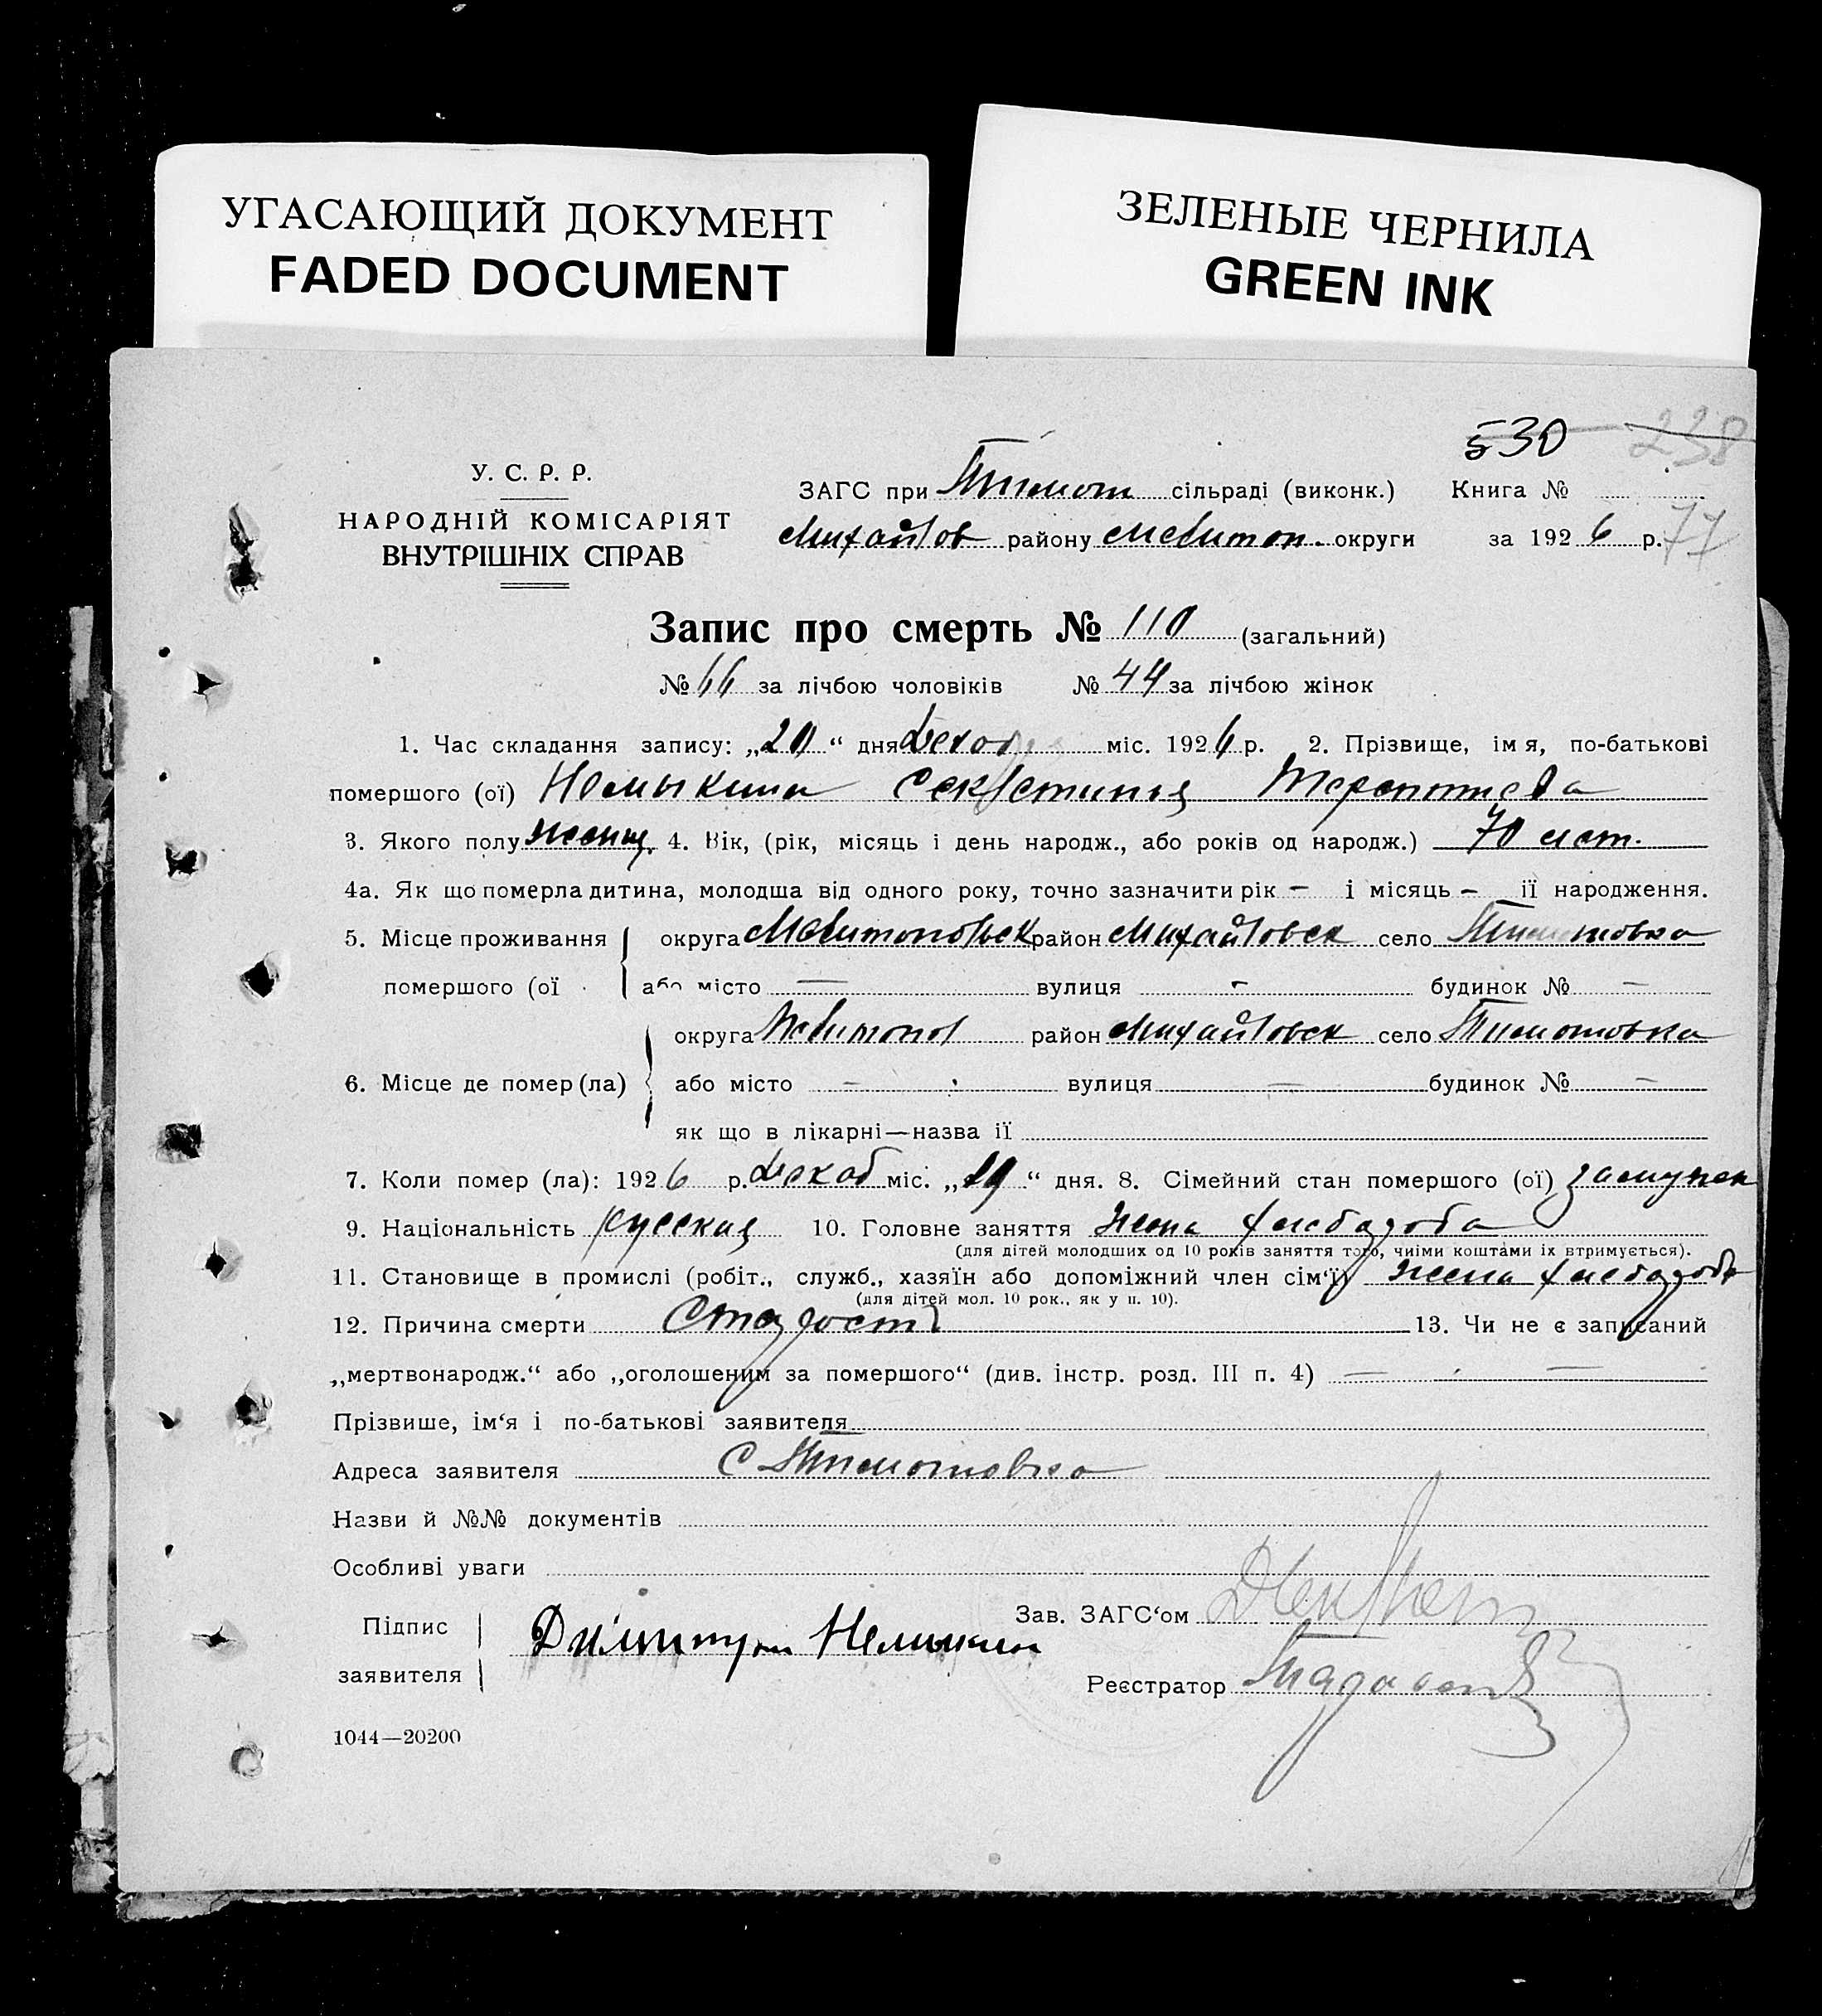 УГАСАЮЩИЙ ДОКУМЕНТ
FADED DOCUMENT
ЗЕЛЕНЫЕ ЧЕРНИЛА
GREEN INK
530 238
У. С. Р. Р.
НАРОДНІЙ КОМІСАРІЯТ
ВНУТРІШНІХ СПРАВ
ЗАГС при Тимош сільраді (виконк.) Книга №
Михайлов району Мелитоп. округи за 1926 р. 77
Запис про смерть № 110 (загальний)
№ 66 за лічбою чоловіків № 44 за лічбою жінок
1. Час складання запису: „20“ дня Декабр міс. 1926 р. 2. Прізвище, імя, по-батькові
помершого (ої)
3. Якого полу женщ. 4. Вік, (рік, місяць і день народж., або років од народж.) 70 лет.
4а. Як що померла дитина, молодша від одного року, точно зазначити рік – і місяць – її народження.
5. Місце проживання округа Мелитопольск район Михайловск село Тимошовка
помершого (ої або місто — вулиця - будинок № —
округа Мелитопол район Михайловск село Тимошовка
6. Місце де помер (ла) або місто – вулиця — будинок № —
як що в лікарні—назва ії
7. Коли помер (ла): 1926 р. Декаб міс. „19“ дня. 8. Сімейний стан помершого (ої) замужем
9. Національність русская 10. Головне заняття жена хлебороба
(для дітей молодших од 10 років заняття того, чиіми коштами іх втримується).
11. Становище в промислі (робіт., служб., хазяїн або допоміжний член сім‘ї) жена хлебороба
(для дітей мол. 10 рок., як у п. 10).
12. Причина смерти Старость 13. Чи не є записаний
„мертвонародж.“ або „оголошеним за помершого“ (див. інстр. розд. III п. 4) — —
Прізвише, ім‘я і по-батькові заявителя
Адреса заявителя С Тимошовка
Назви й №№ документів
Особливі уваги
Підпис
заявителя
Зав. ЗАГС‘ом
Реєстратор
1044—20200